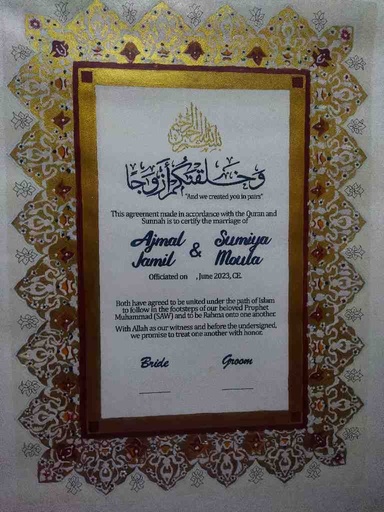 وَخَلَقْنَاكُمْ أَزْوَاجًا
"And we created you in pairs"
This agreement made in accordance with the Quran and
Sunnah is to certify the marriage of
Ajmal Jamil & Sumiya Moula
Officiated on , June 2023, CE.
Both have agreed to be united under the path of Islam
to follow in the footsteps of our beloved Prophet
Muhammad (SAW) and to be Rahma onto one another.
With Allah as our witness and before the undersigned,
we promise to treat one another with honor.
Bride Groom